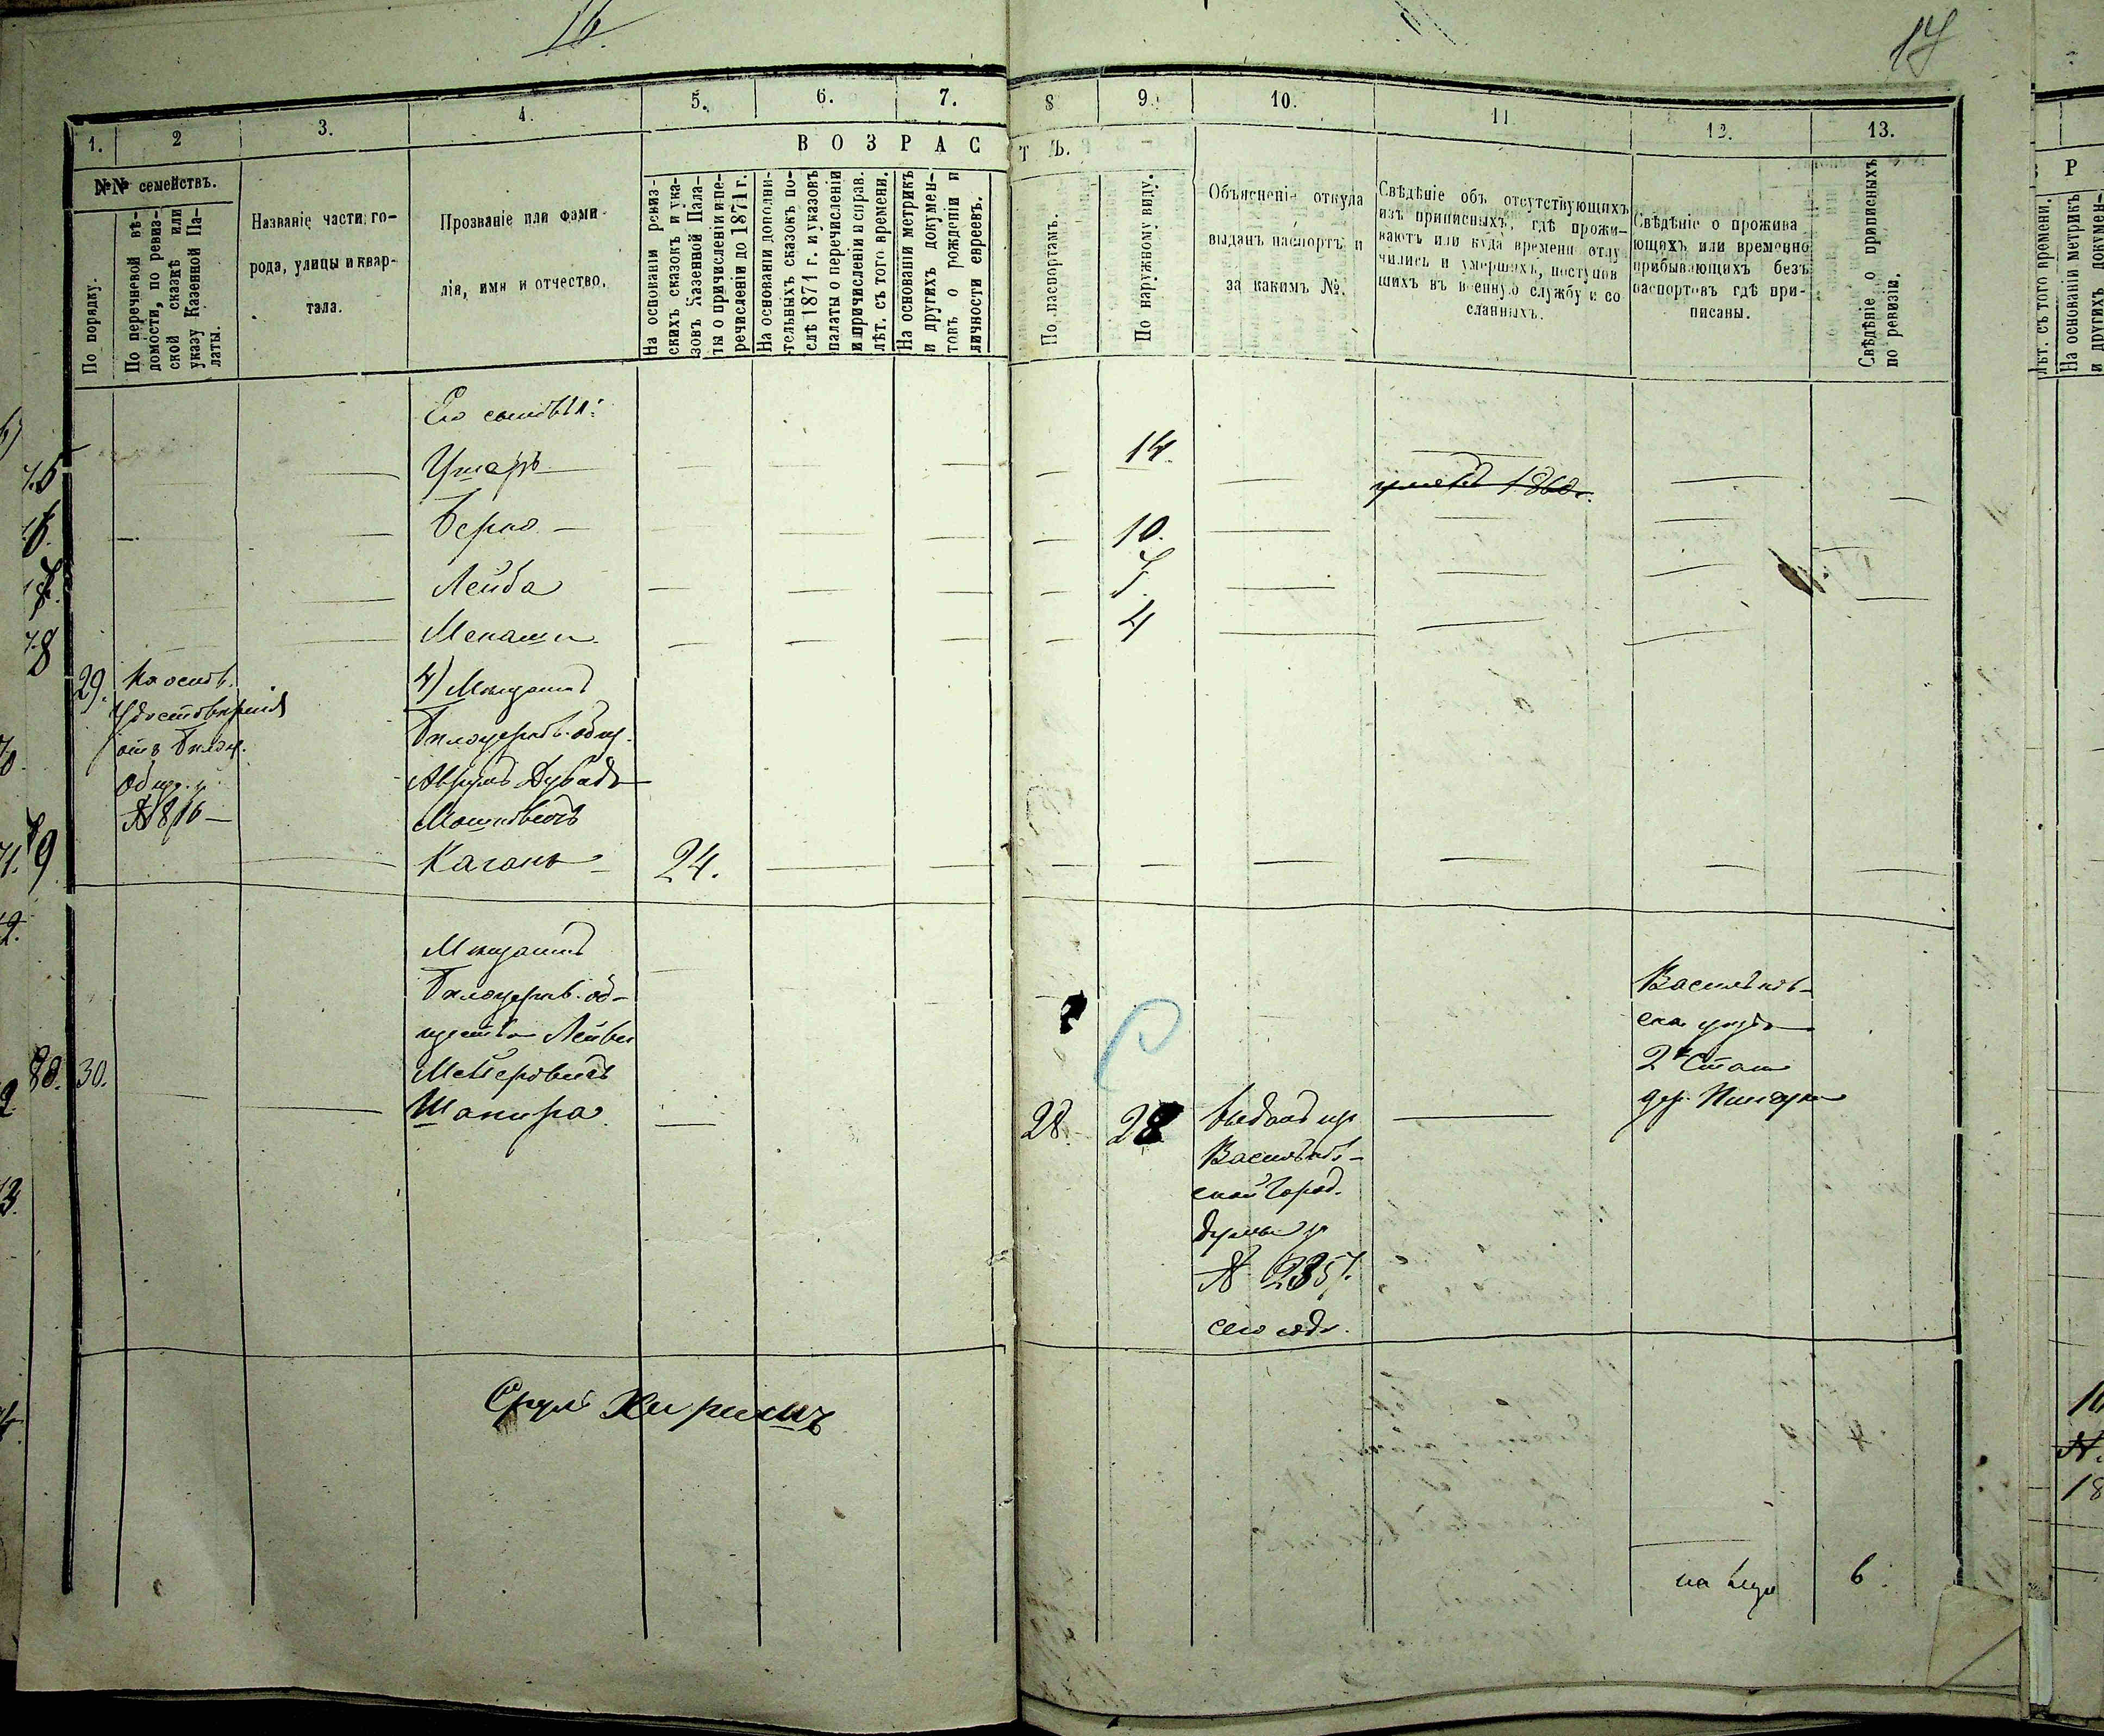 16.
17
1.
2
3.
4.
5.
6.
7.
8
9.
10.
11.
12.
13.
ВОЗРАС
ТЪ.
№№ семействъ.
По порядку.
По перечневой вѣ-
домости, по ревиз-
ской сказкѣ или
указу Казенной Па-
латы.
Названіе части, го-
рода, улицы и квар-
тала.
Прозваніе или фами-
лія, имя и отчество.
На основаніи ревиз-
скихъ сказокъ и ука-
зовъ Казенной Пала-
ты о причисленіи и пе-
речисленіи до 1871 г.
На основаніи дополни-
тельныхъ сказокъ по-
слѣ 1871 г. и указовъ
палаты о перечисленіи
и причисленіи и справ.
лѣт. съ того времени.
На основаніи метрикъ
и другихъ докумен-
товъ о рожденіи и
личности евреевъ.
По паспортамъ.
По наружному виду.
Объясненіе откуда
выданъ паспортъ и
за какимъ №.
Свѣдѣніе объ отсутствующихъ
изъ приписныхъ, гдѣ прожи-
ваютъ или куда времени отлу
чились и умершихъ, поступив
шихъ въ военную службу и со
сланныхъ.
Свѣдѣніе о прожива
ющихъ или временно
прибывающихъ безъ
паспортовъ гдѣ при-
писаны.
Свѣдѣніе о приписныхъ
по ревизіи.
Его сыновья:
14.
Берко 10.
Лейба
Менаши 4
29.
На основ.
Удостовѣренія
Общ.
№ 816
4) Мѣщанинъ
Бѣлоцерков. общ.
Мошковичъ
Каганъ 24.
79
80. 30.
Мѣщанинъ
Бѣлоцерков. об-
щества Лейви
Мееровичъ
Шапира
28. 28
выданъ изъ
Васильков-
ской Город.
Думы
№ 2357.
сего года.
Васильков-
ска. уѣзда
2 Стана
дер.
Сруль
6.